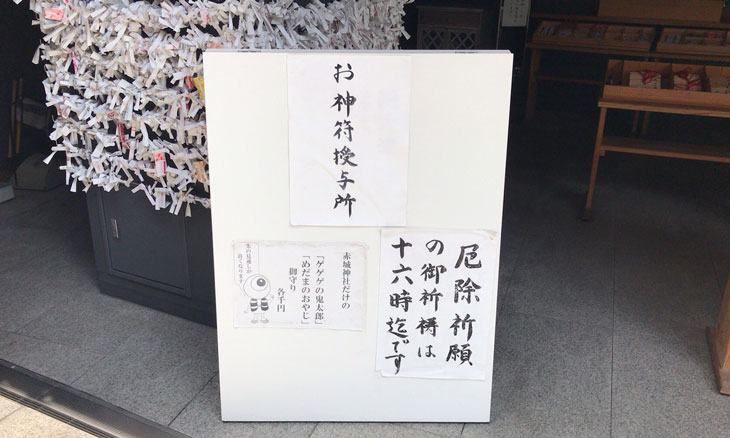 お神符授与所
厄除祈願
の御祈祷は
十六時迄です
赤城神社だけの
「ゲゲゲの鬼太郎」
「めだまのおやじ」
御守り
各千円
先の見通しが
良くなります